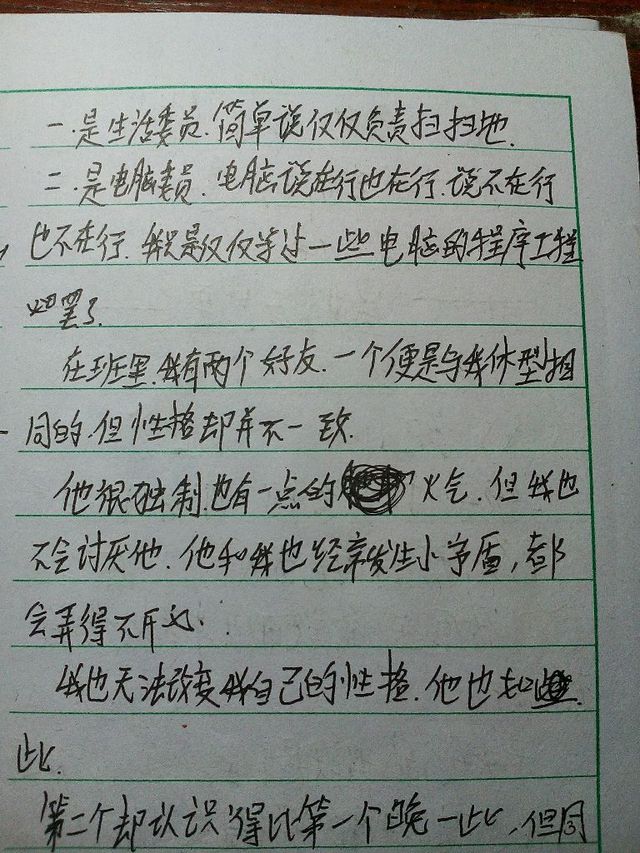 一.是生活委员.简单说仅仅负责扫扫地.
二.是电脑委员.电脑说在行也在行.说不在行
也不在行.我只是仅仅学过一些电脑的程序工程
罢了.
在班里.我有两个好友.一个便是与我体型相
同的.但性格却并不一致.
他很独制.也有一点的火气.但我也
不会讨厌他.他和我也经常发生小矛盾,都
会弄得不开心.
我也无法改变我自己的性格.他也如
此.
第二个却认识得比第一个晚一些,但同